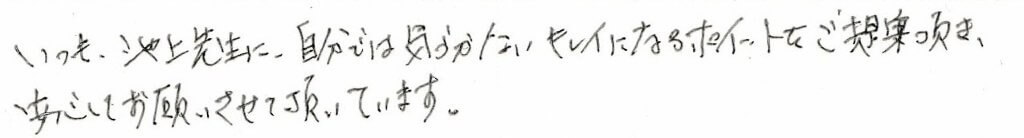 いつも、池上先生に、自分では気づかないキレイになるポイントをご提案頂き、
安心してお願いさせて頂いています。